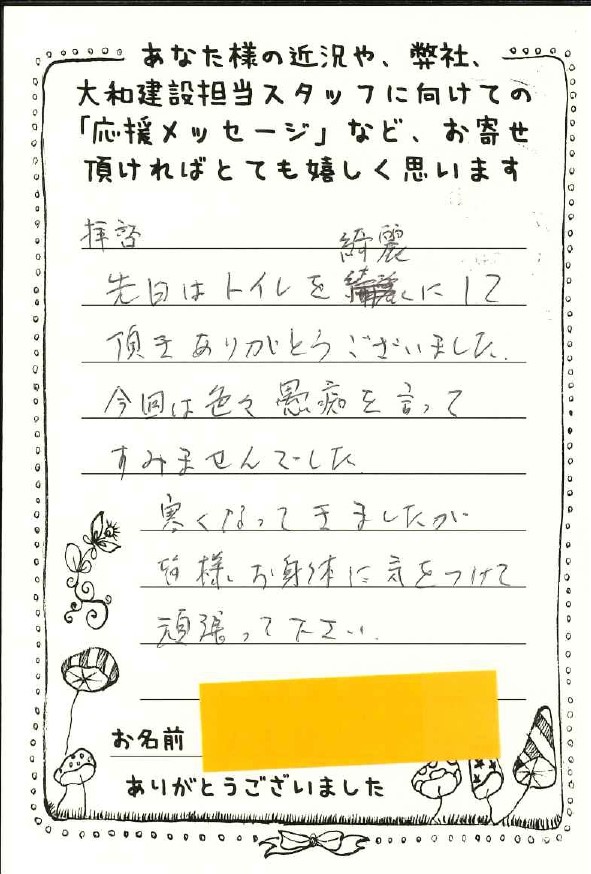 あなた様の近況や、弊社、
大和建設担当スタッフに向けての
「応援メッセージ」など、お寄せ
頂ければとても嬉しく思います
拝啓
綺麗
先日はトイレをにして
頂きありがとうございました。
今回は色々愚痴を言って
すみませんでした
寒くなってきましたが
皆様、お身体に気をつけて
頑張って下さい。
お名前
ありがとうございました